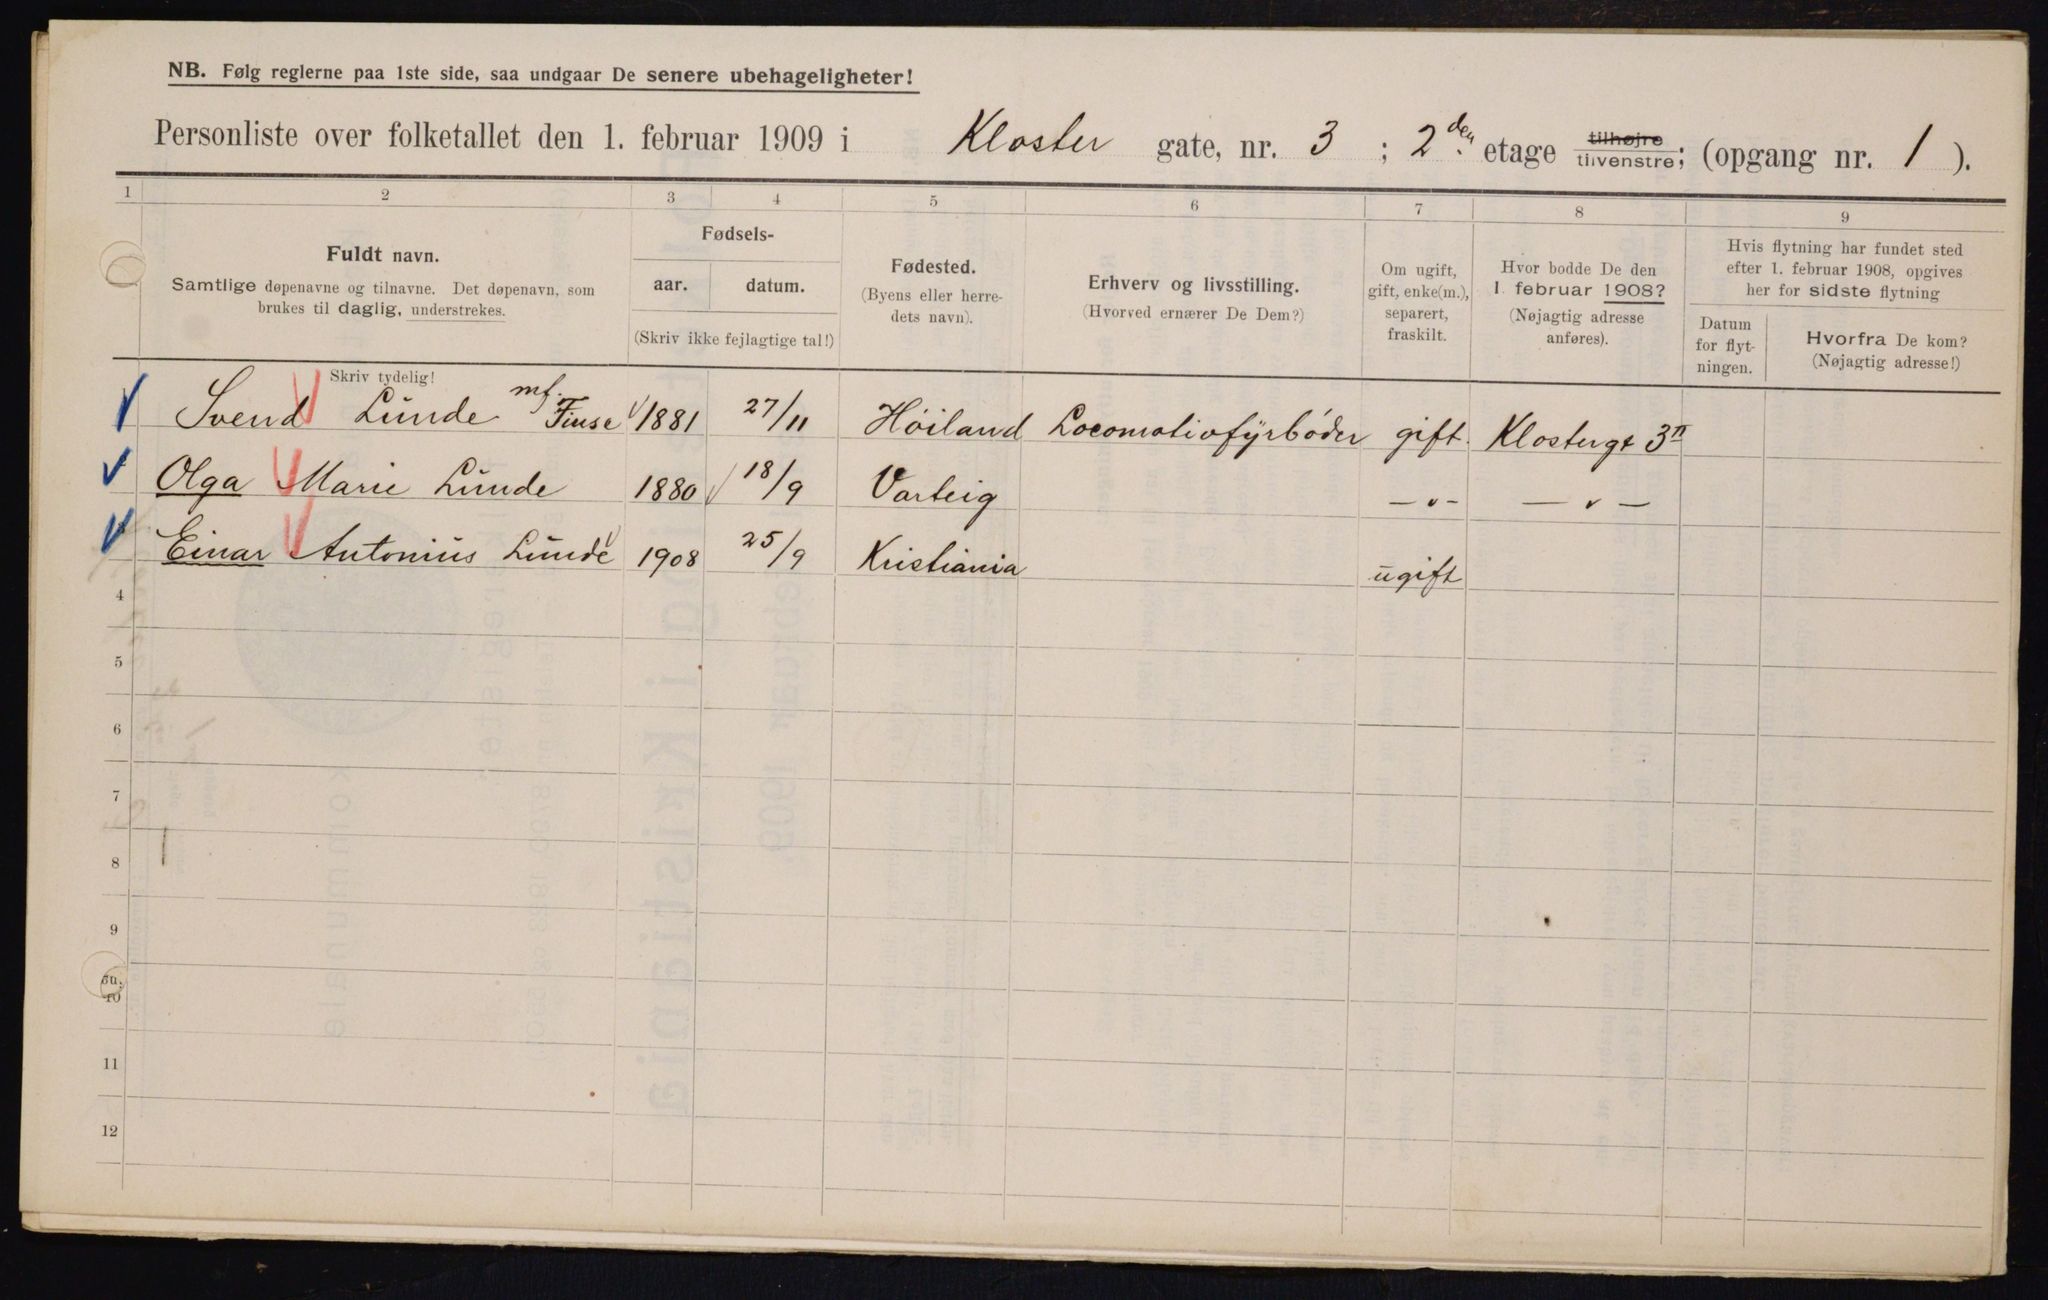 NB. Følg reglerne paa 1ste side, saa undgaar De senere ubehageligheter!
Personliste over folketallet den 1. februar 1909 i Kloster gate, nr. 3 ; 2den etage tilhøjre tilvenstre; (opgang nr. 1 ).
1 2 3 4 5 6 7 8 9
Fuldt navn.
Samtlige døpenavne og tilnavne. Det døpenavn, som
brukes til daglig, understrekes.
Skriv tydelig!
Fødsels-
aar. datum.
(Skriv ikke fejlagtige tal!)
Fødested.
(Byens eller herre-
dets navn).
Erhverv og livsstilling.
(Hvorved ernærer De Dem?)
Om ugift,
gift, enke(m.),
separert,
fraskilt.
Hvor bodde De den
1. februar 1908?
(Nøjagtig adresse
anføres).
Hvis flytning har fundet sted
efter 1. februar 1908, opgives
her for sidste flytning
Datum
for flyt-
ningen.
Hvorfra De kom?
(Nøjagtig adresse!)
mf.
Svend Lunde Finse 1881 27/11 Höiland Locomotivfyrbóder gift Klostergt 3II
Olga Marie Lunde 1880 18/9 Varteig — " — — " —
Einar Antonius Lunde 1908 25/9 Kristiania ugift
4
5
6
7
8
9
10
11
12